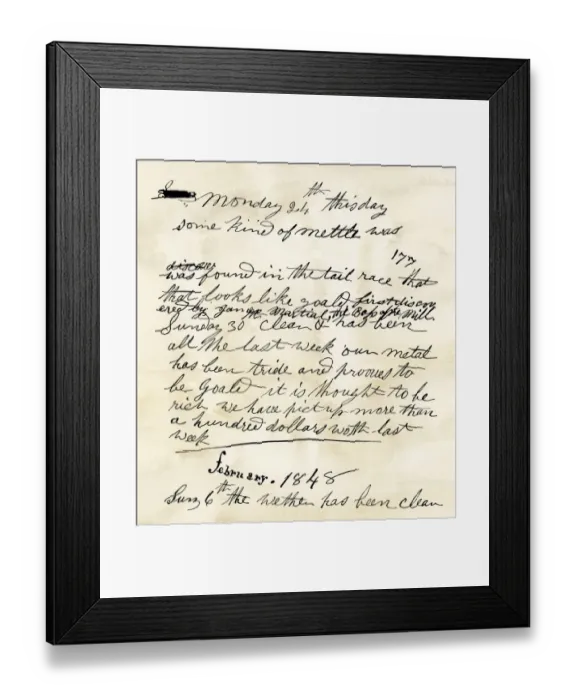 Monday 24th this day
some kind of mettle was
was found in the tail race that
that looks like goald first discov
ered by James Martial, the Boss of the Mill
Sunday 30 clean & has been
all the last week our metal
has been tride and prooves to
be goald it is thought to be
rich we have pict up more than
a hundred dollars woth last
week
February. 1848
Sun 6th the wether has been clean